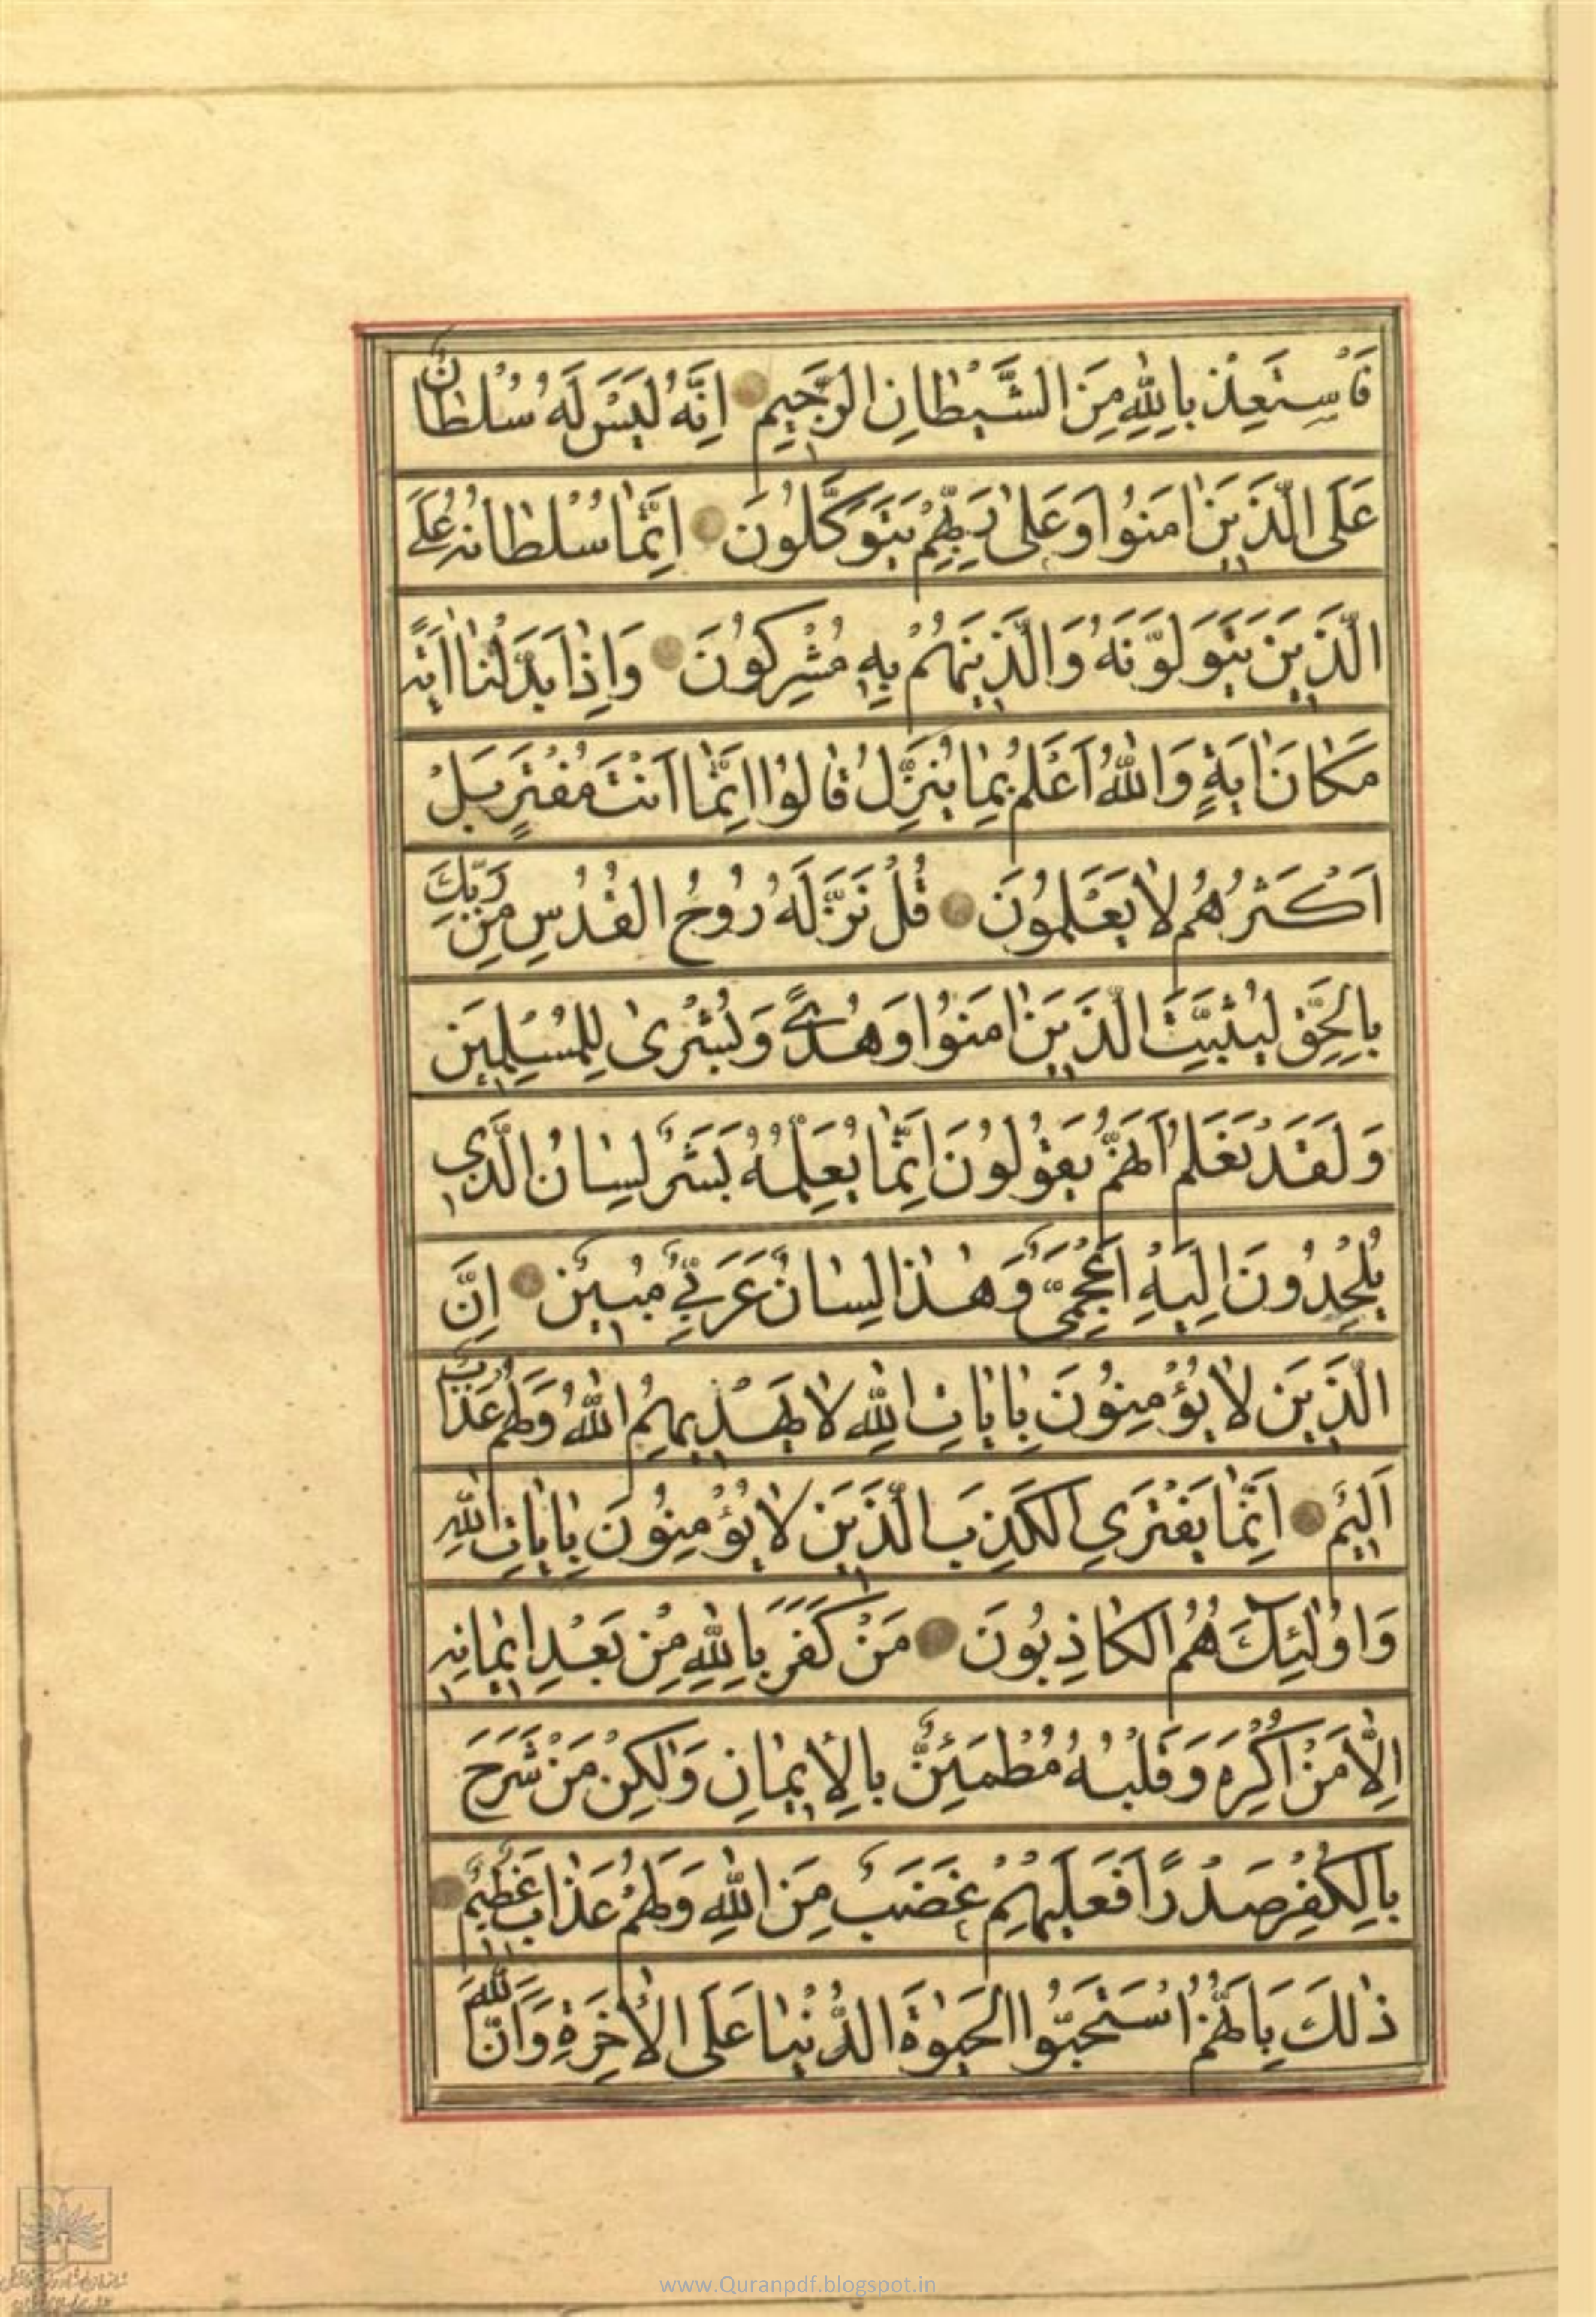 فَاسْتَعِذْ بِاللّٰهِ مِنَ الشَّيْطَانِ الرَّجِيمِ اِنَّهُ لَيْسَ لَهُ سُلْطَانٌ
عَلَى الَّذِينَ اٰمَنُوا وَعَلٰى رَبِّهِمْ يَتَوَكَّلُونَ اِنَّمَا سُلْطَانُهُ عَلَى
الَّذِينَ يَتَوَلَّوْنَهُ وَالَّذِينَ هُمْ بِهِ مُشْرِكُونَ وَاِذَا بَدَّلْنَا اٰيَةً
مَكَانَ اٰيَةٍ وَاللّٰهُ اَعْلَمُ بِمَا يُنَزِّلُ قَالُوا اِنَّمَا اَنْتَ مُفْتَرٍ بَلْ
اَكْثَرُهُمْ لَا يَعْلَمُونَ قُلْ نَزَّلَهُ رُوحُ الْقُدُسِ مِنْ رَبِّكَ
بِالْحَقِّ لِيُثَبِّتَ الَّذِينَ اٰمَنُوا وَهُدًى وَبُشْرٰى لِلْمُسْلِمِينَ
وَلَقَدْ نَعْلَمُ اَنَّهُمْ يَقُولُونَ اِنَّمَا يُعَلِّمُهُ بَشَرٌ لِسَانُ الَّذِي
يُلْحِدُونَ اِلَيْهِ اَعْجَمِيٌّ وَهٰذَا لِسَانٌ عَرَبِيٌّ مُبِينٌ اِنَّ
الَّذِينَ لَا يُؤْمِنُونَ بِاٰيَاتِ اللّٰهِ لَا يَهْدِيهِمُ اللّٰهُ وَلَهُمْ عَذَابٌ
اَلِيمٌ اِنَّمَا يَفْتَرِي الْكَذِبَ الَّذِينَ لَا يُؤْمِنُونَ بِاٰيَاتِ اللّٰهِ
وَاُولٰئِكَ هُمُ الْكَاذِبُونَ مَنْ كَفَرَ بِاللّٰهِ مِنْ بَعْدِ اِيمَانِهِ
اِلَّا مَنْ اُكْرِهَ وَقَلْبُهُ مُطْمَئِنٌّ بِالْاِيمَانِ وَلٰكِنْ مَنْ شَرَحَ
بِالْكُفْرِ صَدْرًا فَعَلَيْهِمْ غَضَبٌ مِنَ اللّٰهِ وَلَهُمْ عَذَابٌ عَظِيمٌ
ذٰلِكَ بِاَنَّهُمُ اسْتَحَبُّوا الْحَيٰوةَ الدُّنْيَا عَلَى الْاٰخِرَةِ وَاَنَّ اللّٰهَ
www.Quranpdf.blogspot.in